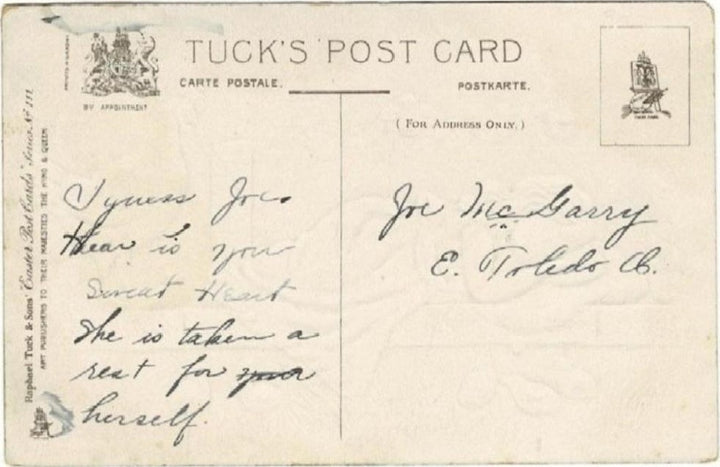 TUCK'S POST CARD
CARTE POSTALE.
POSTKARTE.
BY APPOINTMENT
( FOR ADDRESS ONLY. )
Raphael Tuck & Sons' "Easter Post Cards" Series No 111
ART PUBLISHERS TO THEIR MAJESTIES THE KING & QUEEN
Joe.
Hear is your
Sweat Heart
She is taken a
rest for your
herself.
Joe McGarry
E. Toledo O.